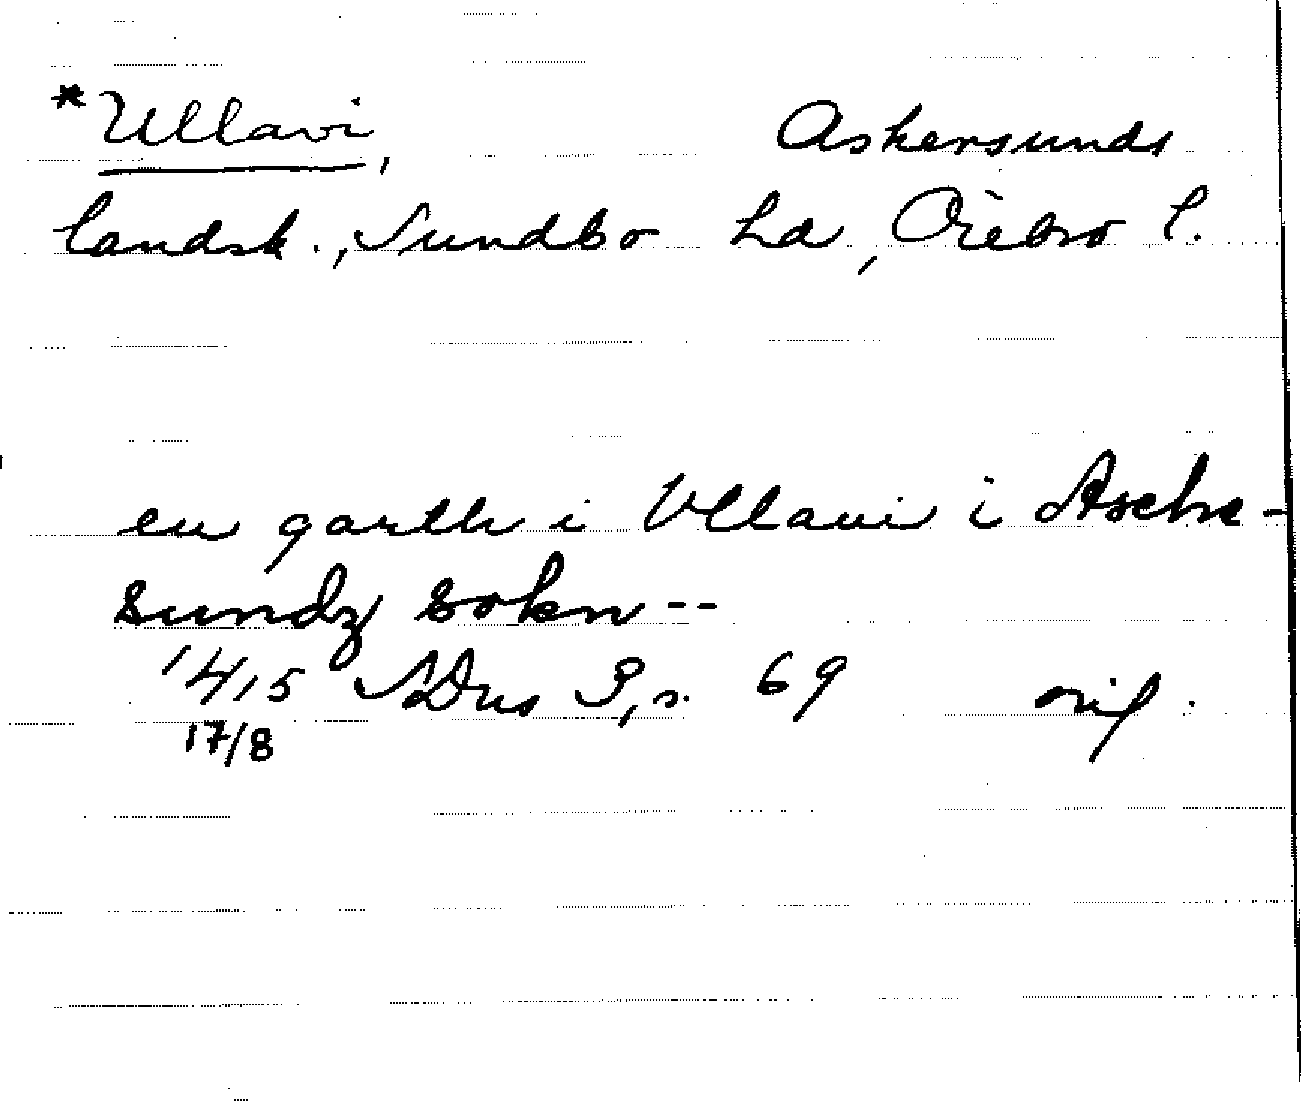 *Ullavi, Askersunds
landsk., Sundbo hd, Örebro l.
en garth i Vllaui i Aschr-
sundz sokn --
1415 SDns 3, s. 69 orig.
17/8